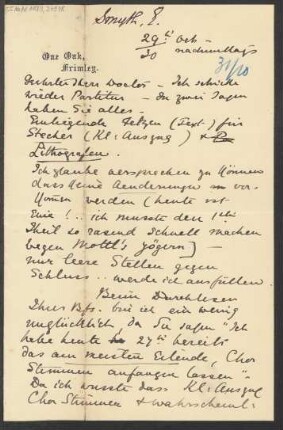 Smyth, E.
29t Oct
30 nachmittags
31/10
One Oak,
Frimley.
Geehrter Herr Doctor – Ich schicke
wieder Partitur – In zwei Tagen
haben Sie alles –
Einliegende Fetzen (Text) für
Stecher (Kl: Auszug) &
Lithografen.
Ich glaube versprechen zu können
dass keine Aenderungen vor-
kommen werden (heute ist
Eine! .. ich musste den
Theil so rasend schnell machen
wegen Mottl's Zögern] –
nur leere Stellen gegen
Schluss .. werde ich ausfüllen
Beim Durchlesen
Ihres Bfs. bin ich ein wenig
unglücklich, da Sie sagen "Ich
habe heute 27t bereits
das am meisten Eilende, Chor
Stimmen anfangen lassen".
Da ich wusste dass Kl: Auszug
Chor Stimmen & wahrscheinl: